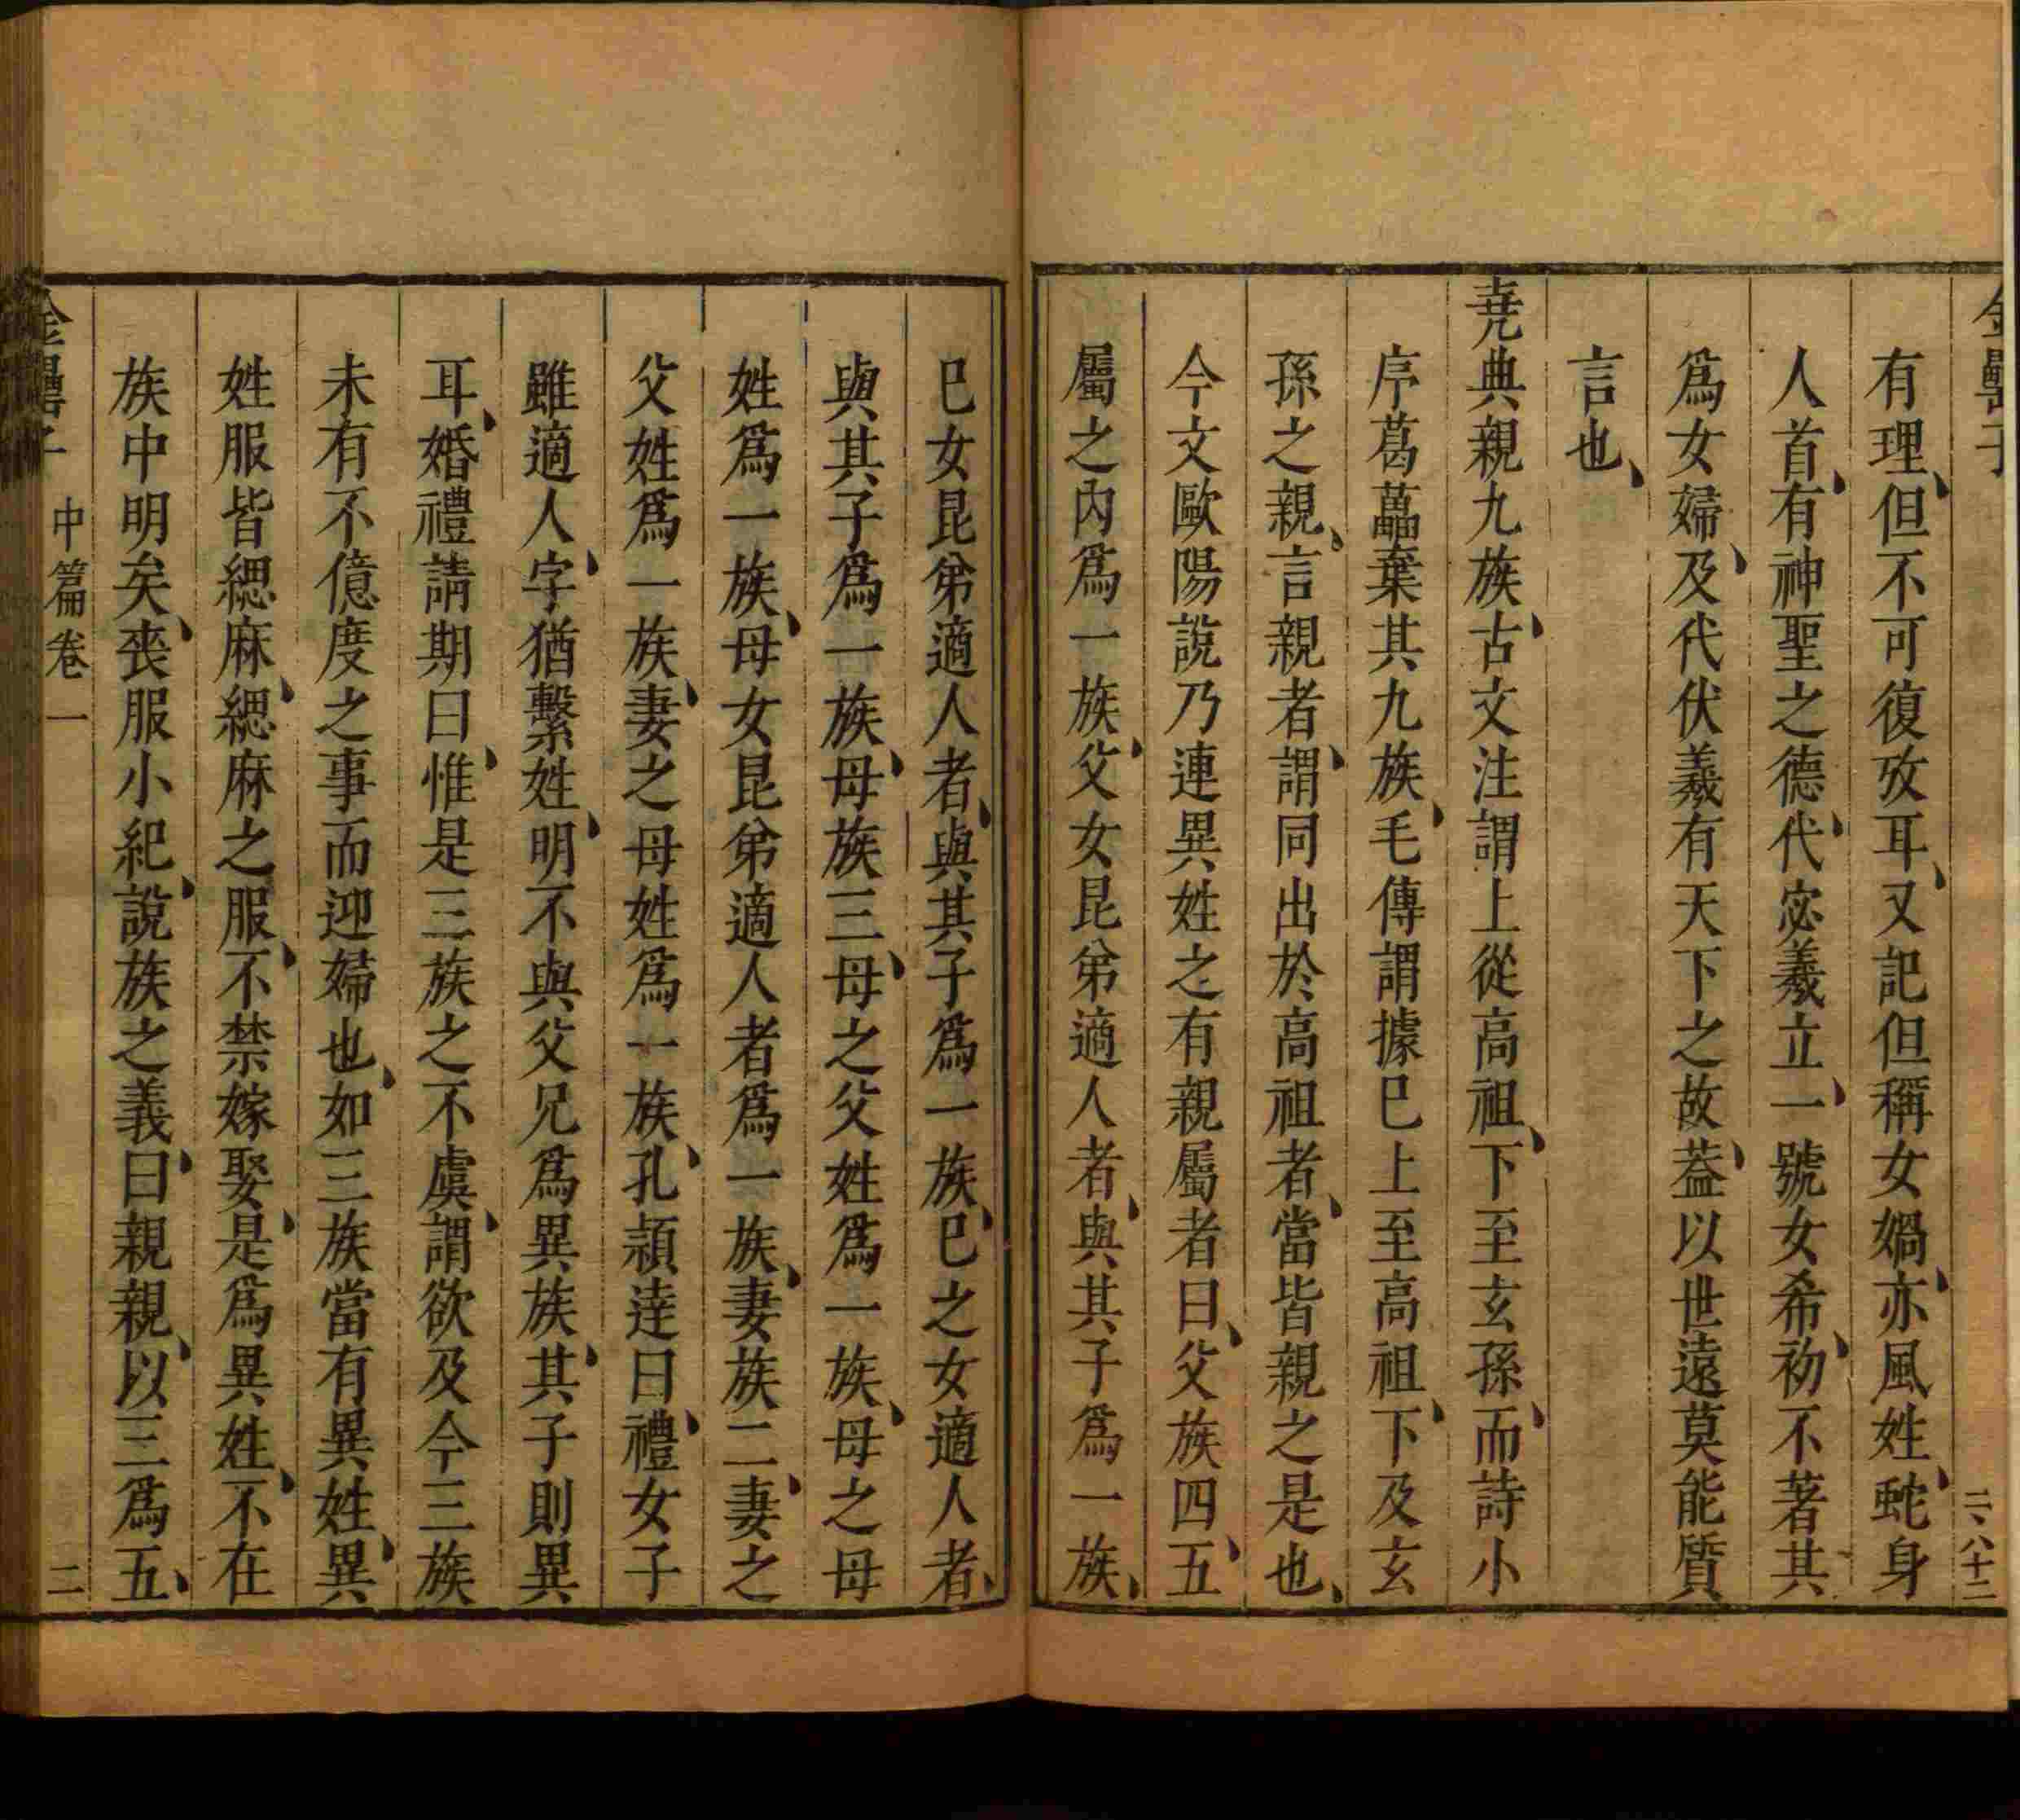 有理、但不可復攷耳、又記但稱女媧、亦風姓、虵身
人首、有神聖之德、代宓羲立、一號女希、初不著其
爲女婦、及代伏羲有天下之故、葢以世遠莫能質
言也、
堯典親九族、古文注謂上從高祖、下至玄孫、而詩小
序葛藟棄其九族、毛傳謂據巳上至高祖、下及玄
孫之親、言親者、謂同出於高祖者、當皆親之是也、
今文歐陽說乃連異姓之有親屬者曰、父族四、五
屬之內爲一族、父女昆弟適人者、與其子爲一族、
巳女昆弟適人者、與其子爲一族、巳之女適人者、
與其子爲一族、母族三、母之父姓爲一族、母之母
姓爲一族、母女昆弟適人者爲一族、妻族二、妻之
父姓爲一族、妻之母姓爲一族、孔頴達曰、禮、女子
雖適人、字猶繫姓、明不與父兄爲異族、其子則異
耳、婚禮請期曰、惟是三族之不虞、謂欲及今三族
未有不億度之事而迎婦也、如三族當有異姓、異
姓服皆緦麻、緦麻之服、不禁嫁娶、是爲異姓、不在
族中明矣、喪服小紀、說族之義、曰親親、以三爲五、
中篇卷一
二